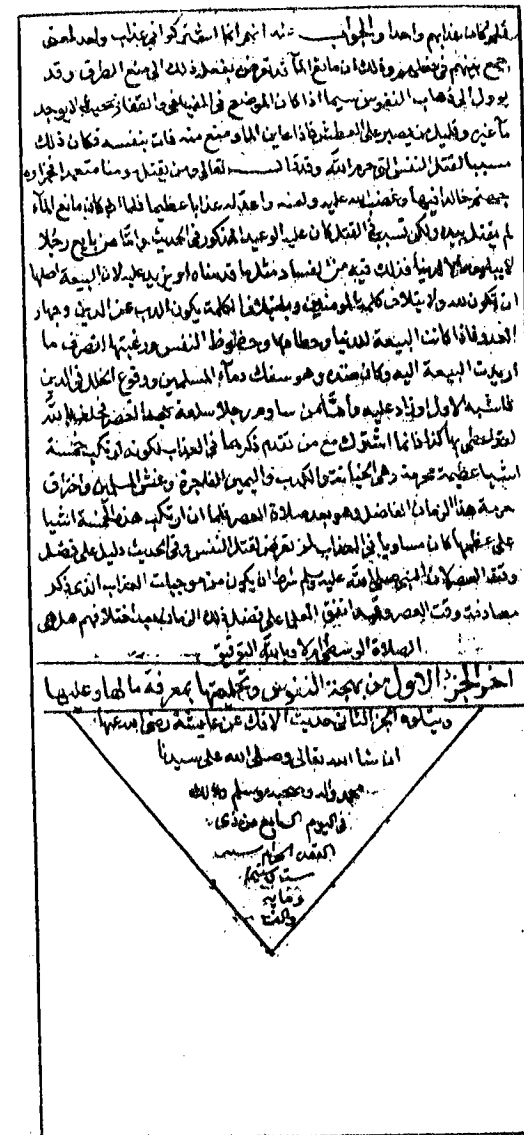 فلم كان عذابهم واحدا والجواب عنه انهم انما اشتركوا في عذاب واحد لمعنى
جمع بينهم في وذلك ان مانع الما قد تعرض بفعله ذلك الى منع الطرق وقد
يوول الى ذهاب النفوس سيما اذا كان الموضع في والقفار بحيث لا يوجد
ما غيره وقليل من يصبر على العطش فاذا عاين الما ومنع منه فات بنفسه فكان ذلك
سببا لقتل النفس التي حرم الله وقد قال تعالى ومن يقتل مومنا متعمدا فجزاوه
جهنم خالدا فيها وغضب الله عليه ولعنه واعد له عذابا عظيما فلما ان كان مانع الماء
لم يقتل بيده ولكن تسبب في القتل كان عليه الوعيد المذكور في الحديث واما من بايع رجلا
لا يبايعه الا لدنيا فذلك فيه من الفساد مثل ما قدمناه او يزيد عليه لان البيعة اصلها
ان تكون لله ولا يتلاف كلمة المومنين وبايتلاف الكلمة يكون الذب عن الدين وجهاد
العدو فاذا كانت البيعة للدنيا وحطامها وحظوظ النفس ورغبتها انصرف ما
اريدت البيعة اليه وكان ضده وهو سفك دماء المسلمين ووقوع الخلل في الدين
فاشبه الاول او زاد عليه واما من ساوم رجلا سلعة بعد العصر فحلف بالله
لقد اعطى بها كذا فانما اشترك مع من تقدم ذكرهما في العذاب لكونه ارتكب خمسة
اشيا عظيمة محرمة وهي الخيانة والكذب واليمين الفاجرة وغش المسلمين واختراق
حرمة هذا الزمان الفاضل وهو بعد صلاة العصر فلما ان ارتكب هذه الخمسة اشيا
على عظمها كان مساويا في العذاب لمن تعرض لقتل النفس وفي الحديث دليل على فضل
وقت العصر لان النبي صلى الله عليه وسلم شرط ان يكون من موجبات العذاب الذي ذكر
مصادفة وقت العصر وقد اتفق العلما على فضل ذلك الزمان بعد اختلافهم هل هي
الصلاة الوسطى ام لا وبالله التوفيق
اخر الجزء الاول من بهجة النفوس وتحليها بمعرفة ما لها وعليها
ويتلوه الجزء الثاني حديث الافك عن عايشة رضي الله عنها
ان شا الله تعالى وصلى الله على سيدنا
محمد واله وصحبه وسلم وذلك
في اليوم السابع من ذي
القعدة الحرام
سنة
وماية
والف